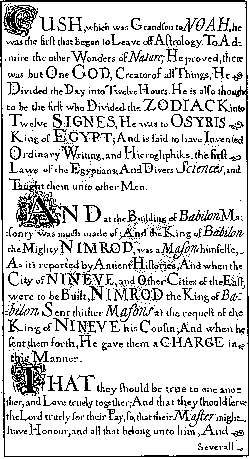 CUSH, which was Grandson to NOAH, he
was the first that began to Leave off Astrology, To Ad-
mire the other Wonders of Nature; He proved, there
was but One GOD, Creator of all Things, He
Divided the Day into Twelve Hours. He is also thought
to be the first who Divided the ZODIACK into
Twelve SIGNES, He was to OSYRIS
King of EGYPT; And is said to have Invented
Ordinary Writing, and Hierogliphiks, the first
Laws of the Egyptians, And Divers Sciences, and
Taught them unto other Men.
AND at the Building of Babilon Ma-
sonry was much made of; And the King of Babilon
the Mighty NIMROD, was a Mason himselfe,
As it's reported by Antient Histories, And when the
City of NINEVE, and Other Cities of the East,
were to be Built, NIMROD the King of Ba-
bilon, Sent thither Masons at the request of the
King of NINEVE his Cousin; And when he
sent them forth, He gave them a CHARGE in
this Manner.
THAT they should be true to one ano-
ther, and Love truely together; And that they should serve
the Lord truely for their Pay, so, that their Master might
have Honour, and all that belong unto him, And
Severall